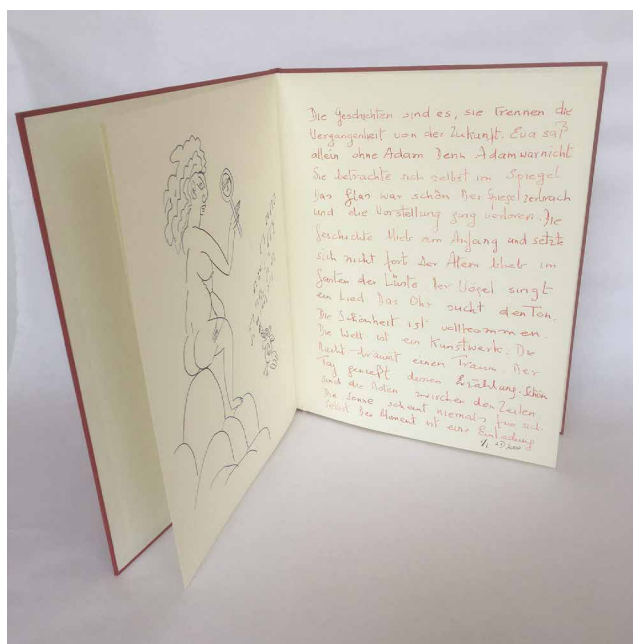 Die Geschichten sind es, sie trennen die
Vergangenheit von der Zukunft. Eva saß
allein ohne Adam Denn Adam war nicht
Sie betrachte sich selbst im Spiegel
Das Glas war schön Der Spiegel zerbrach
und die Vorstellung ging verloren. Die
Geschichte blieb am Anfang und setzte
sich nicht fort Der Atem blieb im
Garten der Lüste. Der Vogel singt
ein Lied Das Ohr sucht den Ton.
Die Schönheit ist vollkommen.
Die Welt ist ein Kunstwerk. Die
Nacht träumt einen Traum. Der
Tag genießt deinen Erzählung. Schön
sind die Noten zwischen den Zeilen
Die Sonne scheint niemals für sich
selbst Der Moment ist eine Einladung